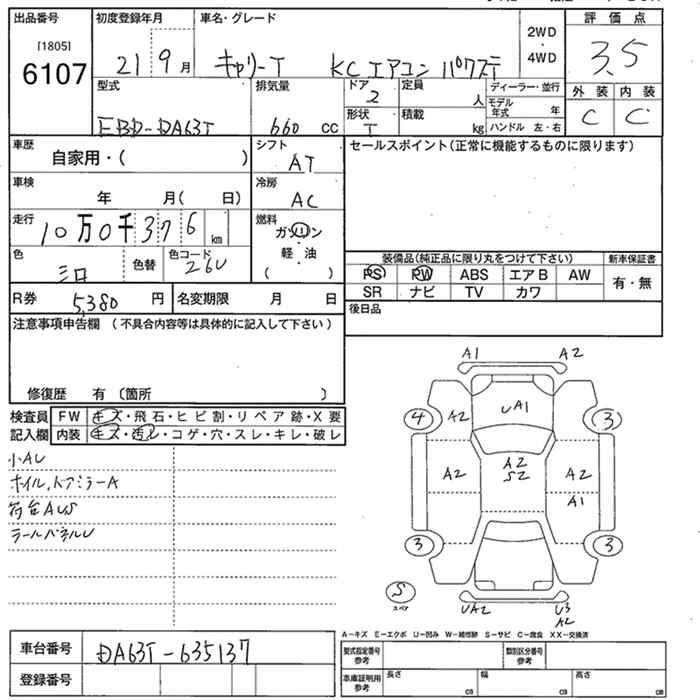 出品番号 初度登録年月 車名・グレード 2WD・4WD 評価点
[1805]
6107 21 9月 キャリーT KCエアコン パワステ 3.5
型式 排気量 ドア 2 定員 人 ディーラー・並行 外装 内装
モデル年式 年
EBD-DA63T 660 cc 形状 T 積載 kg ハンドル 左・右 C C
車歴 自家用・( ) シフト AT セールスポイント(正常に機能するものに限ります)
車検 年 月( 日) 冷房 AC
走行 10万0千376km 燃料 ガソリン・軽油 ( )
色 シロ 色替 色コード 26U
装備品(純正品に限り丸をつけて下さい) 新車保証書
PS PW ABS エアB AW 有・無
SR ナビ TV カワ
R券 5,380円 名変期限 月 日
後日品
注意事項申告欄 (不具合内容等は具体的に記入して下さい)
修復歴 有〔箇所 〕
検査員記入欄 FW キズ・飛石・ヒビ割・リペア跡・X要
内装 キズ・汚レ・コゲ・穴・スレ・キレ・破レ
小AU
ホイル、ドアミラーA
荷台AUS
テールパネルU
A1 A2
4 A2 UA1 3
A2 A2 S2 A2
A1
3 3
S スペア
UA2 U3 A2
A-キズ E-エクボ U-凹み W-補修跡 S-サビ C-腐食 XX-交換済
車台番号 DA63T-635137
登録番号
型式指定番号 参考 類別区分番号 参考
車庫証明用 参考 長さ cm 幅 cm 高さ cm